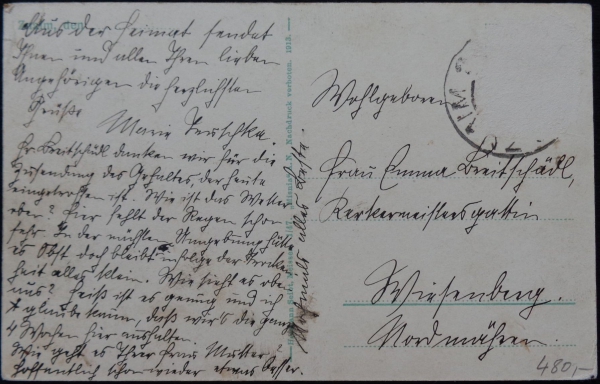 Aus der Heimat sendet
Ihnen und allen Ihren lieben
Angehörigen die herzlichsten
Grüße
Marie
Fr. Breitschädl danken wir für die
Zusendung des Gehaltes, der heute
eingetroffen ist. Wie ist das Wetter
oben? Hier fehlt der Regen schon
sehr. In der nächsten Umgebung hätte
es Obst doch bleibt infolge der Trocken-
heit alles klein. Wie sieht es oben
aus? Heiß ist es genug und ich
glaube kaum, daß wir's die ganzen
4 Wochen hier aushalten.
Wie geht es Ihrer Frau Mutter?
Hoffentlich schon wieder etwas besser.
Nochmals alles Beste.
Nachdruck verboten. 1913.
Wohlgeboren
Frau Emma Breitschädl,
Kerkermeistersgattin
Wiesenberg.
Nordmähren.
480,-